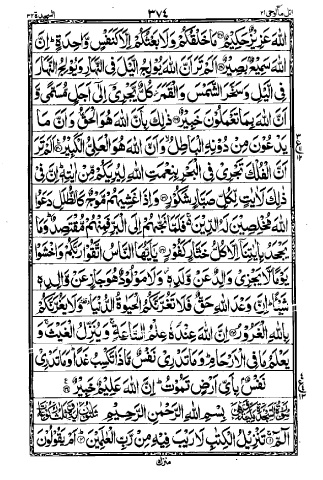 اتل ماۤ اوحی ۲۱ ۳۷۴ السجدة ۳۲
اللّٰهَ عَزِيْزٌ حَكِيْمٌ ۝ مَا خَلْقُكُمْ وَلَا بَعْثُكُمْ اِلَّا كَنَفْسٍ وَّاحِدَةٍ ؕ اِنَّ
اللّٰهَ سَمِيْعٌۢ بَصِيْرٌ ۝ اَلَمْ تَرَ اَنَّ اللّٰهَ يُوْلِجُ الَّيْلَ فِى النَّهَارِ وَيُوْلِجُ النَّهَارَ
فِى الَّيْلِ وَسَخَّرَ الشَّمْسَ وَالْقَمَرَ ؗ كُلٌّ يَّجْرِىْۤ اِلٰٓى اَجَلٍ مُّسَمًّى وَّ
اَنَّ اللّٰهَ بِمَا تَعْمَلُوْنَ خَبِيْرٌ ۝ ذٰلِكَ بِاَنَّ اللّٰهَ هُوَ الْحَقُّ وَاَنَّ مَا
يَدْعُوْنَ مِنْ دُوْنِهِ الْبَاطِلُ ۙ وَاَنَّ اللّٰهَ هُوَ الْعَلِىُّ الْكَبِيْرُ ۝ اَلَمْ تَرَ
اَنَّ الْفُلْكَ تَجْرِىْ فِى الْبَحْرِ بِنِعْمَتِ اللّٰهِ لِيُرِيَكُمْ مِّنْ اٰيٰتِهٖ ؕ اِنَّ فِىْ
ذٰلِكَ لَاٰيٰتٍ لِّكُلِّ صَبَّارٍ شَكُوْرٍ ۝ وَاِذَا غَشِيَهُمْ مَّوْجٌ كَالظُّلَلِ دَعَوُا
اللّٰهَ مُخْلِصِيْنَ لَهُ الدِّيْنَ ۚ فَلَمَّا نَجّٰهُمْ اِلَى الْبَرِّ فَمِنْهُمْ مُّقْتَصِدٌ ؕ وَمَا
يَجْحَدُ بِاٰيٰتِنَاۤ اِلَّا كُلُّ خَتَّارٍ كَفُوْرٍ ۝ يٰۤاَيُّهَا النَّاسُ اتَّقُوْا رَبَّكُمْ وَاخْشَوْا
يَوْمًا لَّا يَجْزِىْ وَالِدٌ عَنْ وَّلَدِهٖ ؗ وَلَا مَوْلُوْدٌ هُوَ جَازٍ عَنْ وَّالِدِهٖ
شَيْـًٔا ؕ اِنَّ وَعْدَ اللّٰهِ حَقٌّ فَلَا تَغُرَّنَّكُمُ الْحَيٰوةُ الدُّنْيَا ۥ وَلَا يَغُرَّنَّكُمْ
بِاللّٰهِ الْغَرُوْرُ ۝ اِنَّ اللّٰهَ عِنْدَهٗ عِلْمُ السَّاعَةِ ۚ وَيُنَزِّلُ الْغَيْثَ ۚ وَ
يَعْلَمُ مَا فِى الْاَرْحَامِ ؕ وَمَا تَدْرِىْ نَفْسٌ مَّاذَا تَكْسِبُ غَدًا ؕ وَمَا تَدْرِىْ
نَفْسٌۢ بِاَىِّ اَرْضٍ تَمُوْتُ ؕ اِنَّ اللّٰهَ عَلِيْمٌ خَبِيْرٌ ۝
بِسْمِ اللّٰهِ الرَّحْمٰنِ الرَّحِيْمِ
الٓمّٓ ۝ تَنْزِيْلُ الْكِتٰبِ لَا رَيْبَ فِيْهِ مِنْ رَّبِّ الْعٰلَمِيْنَ ۝ اَمْ يَقُوْلُوْنَ
منزل